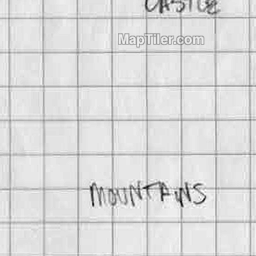 CASTLE
MapTiler.com
MOUNTAINS